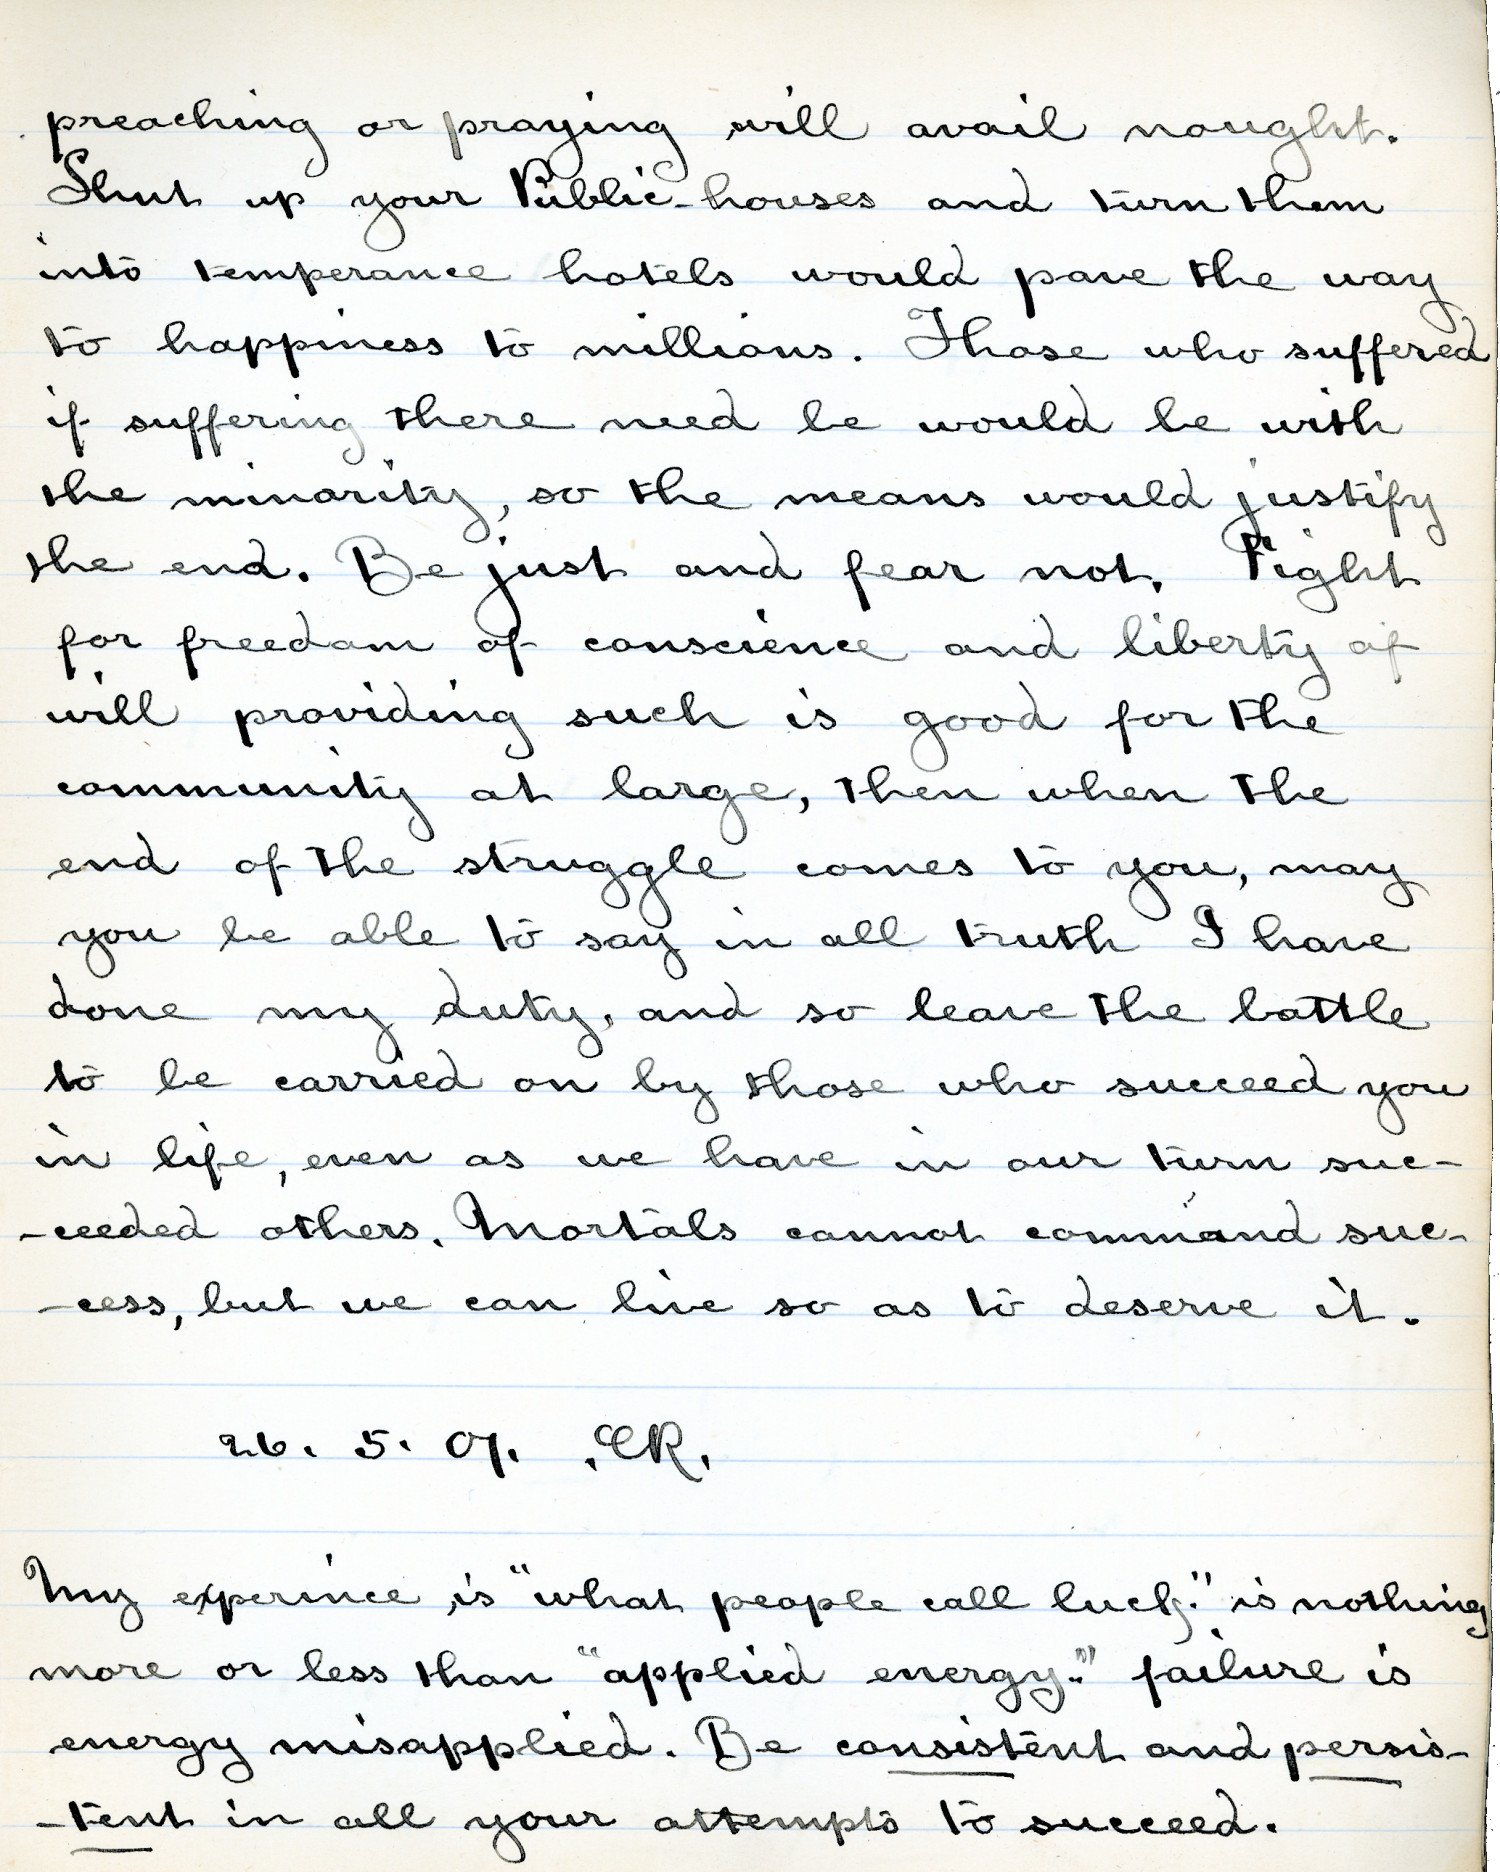 preaching or praying will avail nought.
Shut up your Public-houses and turn them
into temperance hotels would pave the way
to happiness to millions. Those who suffered
if suffering there need be would be with
the minority, so the means would justify
the end. Be just and fear not. Fight
for freedom of conscience and liberty of
will providing such is good for the
community at large, then when the
end of the struggle comes to you, may
you be able to say in all truth I have
done my duty, and so leave the battle
to be carried on by those who succeed you
in life, even as we have in our turn suc-
-ceeded others. Mortals cannot command suc-
-cess, but we can live so as to deserve it.
26. 5. 07. .CR.
My experince is "what people call luck." is nothing
more or less than "applied energy." failure is
energy misapplied. Be consistent and persis-
-tent in all your attempts to succeed.